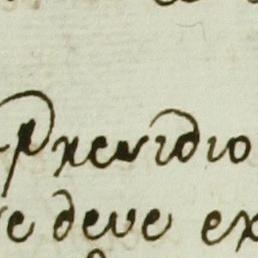 Presidio
se deve ex